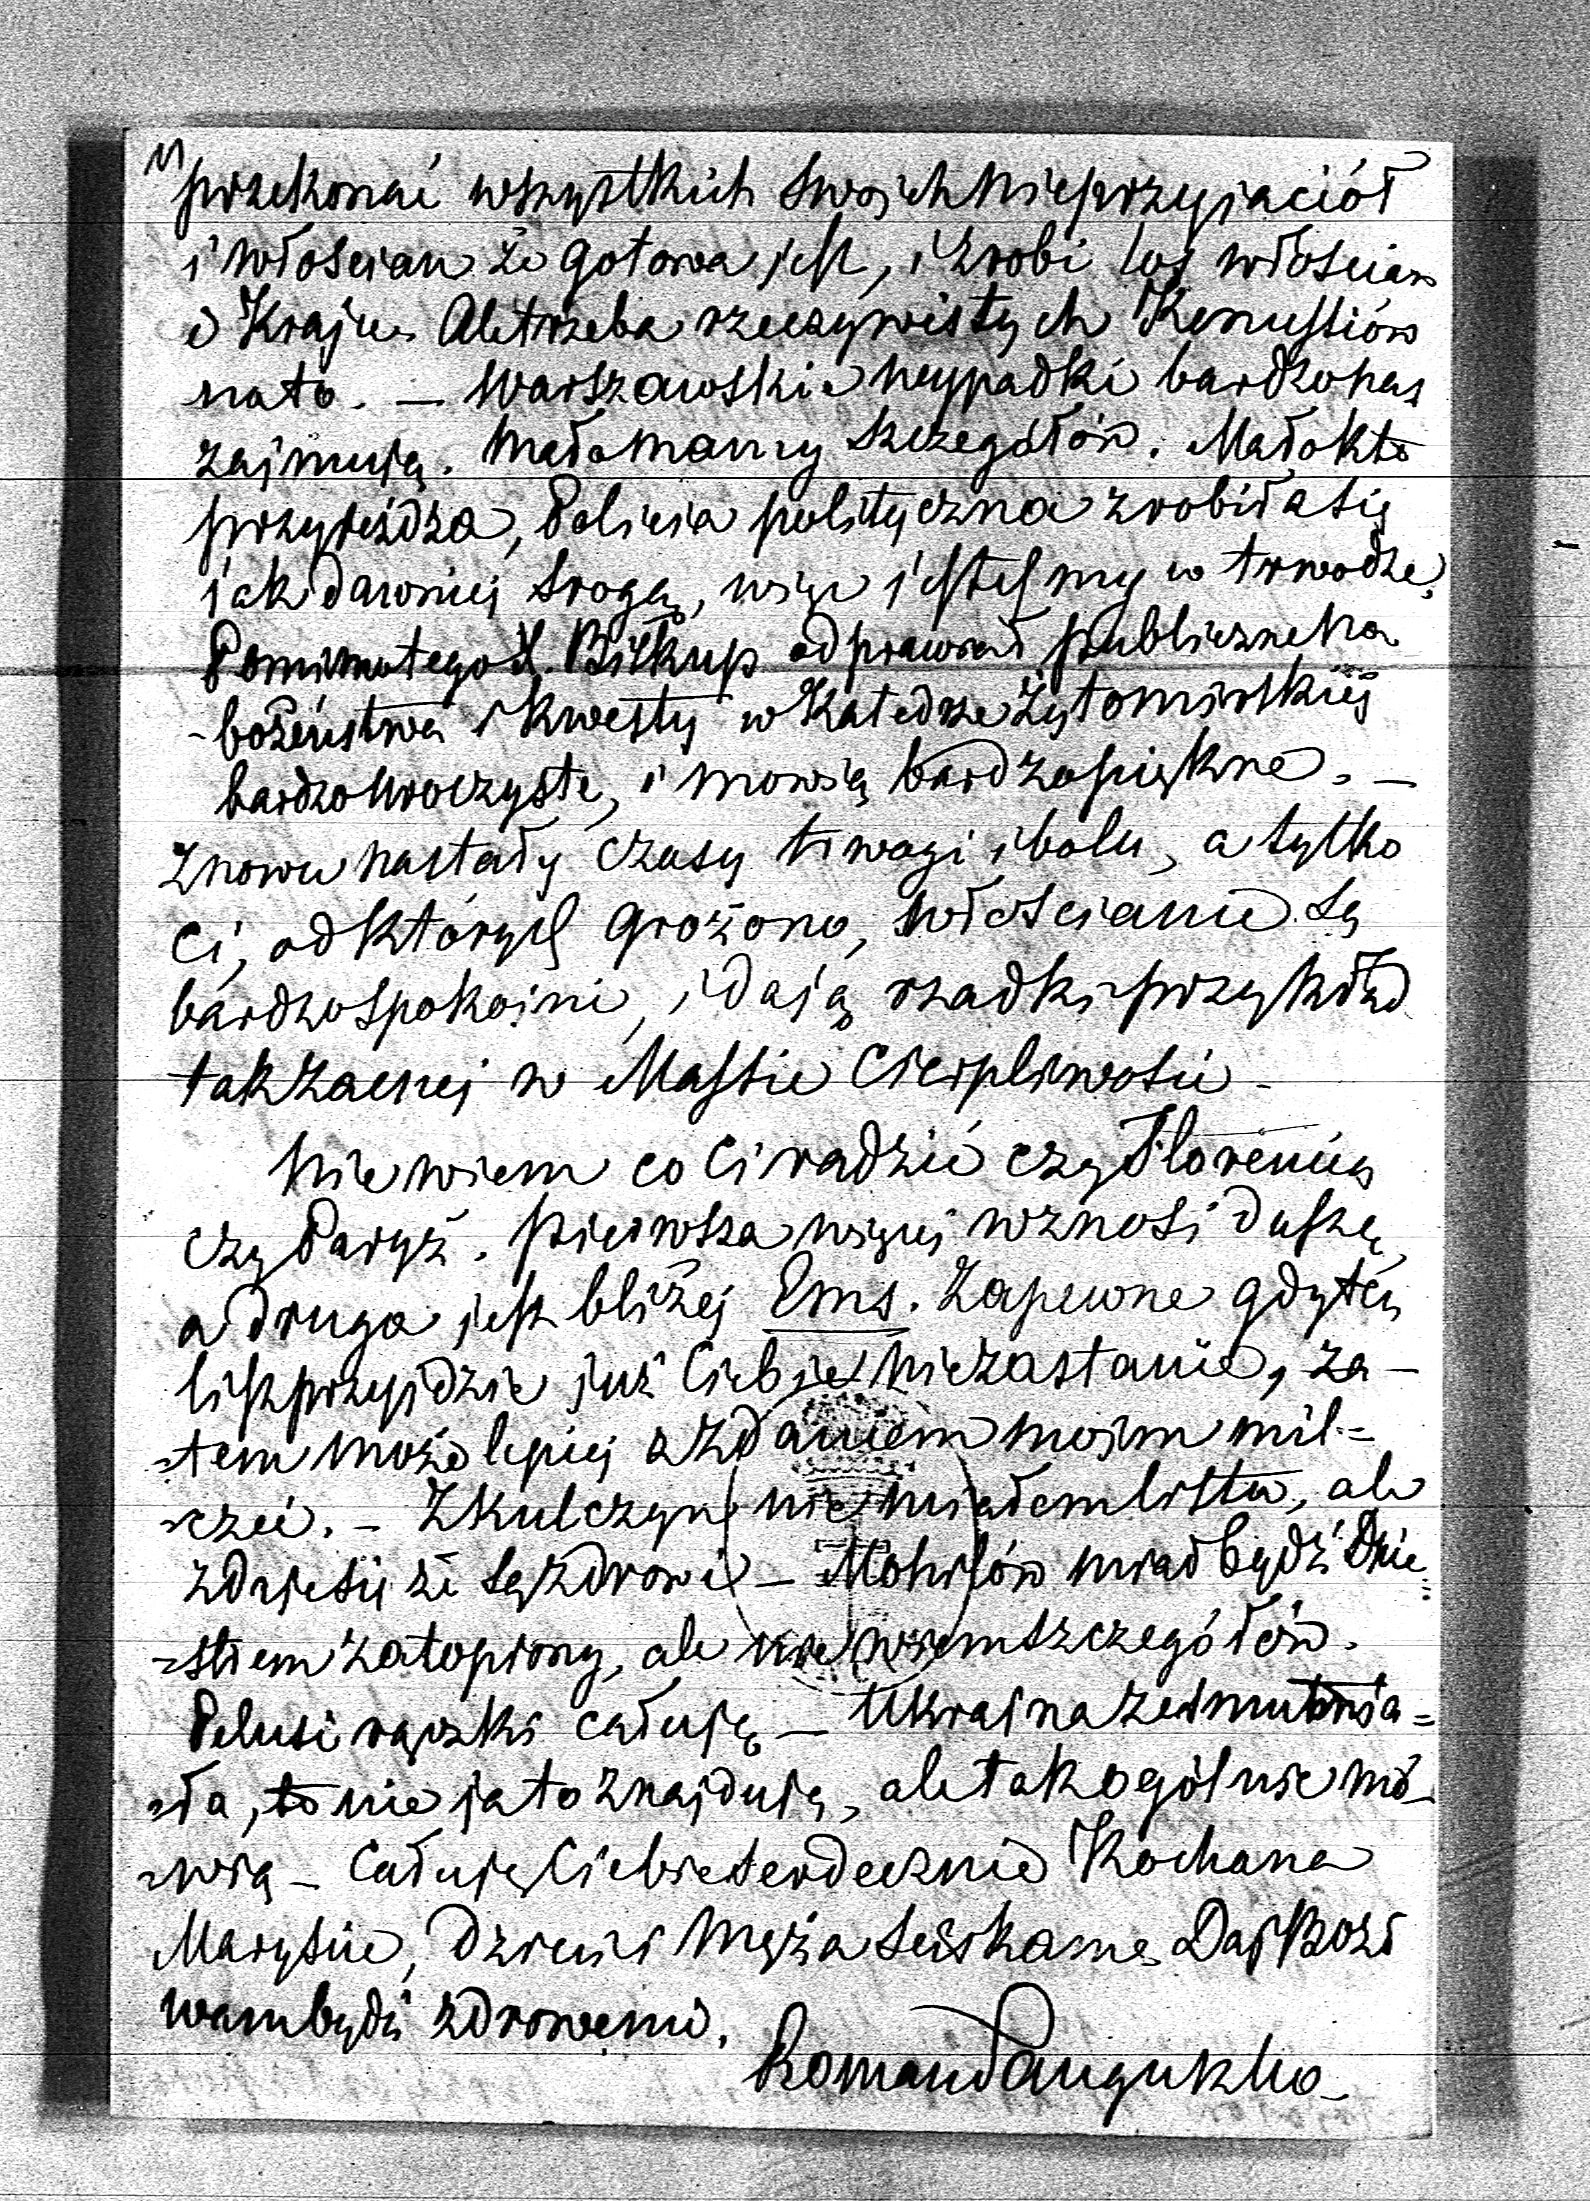 przekonać wszystkich swoich nieprzyjaciół
i włościan że gotowa jest, i zrobi los włościan
i Kraju. Ale trzeba rzeczywistych
na to. — Warszawskie wypadki bardzo nas
zajmują. Mało mamy szczegółów. Mało kto
przyjeżdża, Policia polityczna zrobiła się
jak dawniej srogą, więc jesteśmy w trwodze,
Pomimo tego X. Biskup odprawiał publiczne na-
-bożeństwa i kwesty w Katedrze Żytomirskiej
bardzo uroczyste, i mowią bardzo piękne. —
Znowu nastały czasy trwogi i bolu, a tylko
Ci, od których grożono, włościanie są
bardzo spokojni, i dają rzadki przykład
tak zacnej w Massie Cierpliwości —
Nie wiem co Ci radzić czy Florencią
czy Paryż. Pierwsza więcej wznosi duszę,
a druga jest bliżej Ems. Zapewne gdy ten
list przyjdzie już Ciebie nie zastanie, za-
=tem może lepiej z zdaniem mojem mil=
=czeć. — Z Kulczyn nie miałem listu, ale
zdaje się że są zdrowi — Mohilów miał bydź Dnie=
=strem zatopiony, ale nie wiem szczegółów.
Pelusi rączki całuję — Ukraina
=ła, to nie ja to znajduję, ale tak ogólnie mó-
=wią — Całuję Ciebie serdecznie Kochana
Marysiu, Dzieci i Męża ściskam. Daj Boże
wam bydź zdrowemi.
Roman Sanguszko